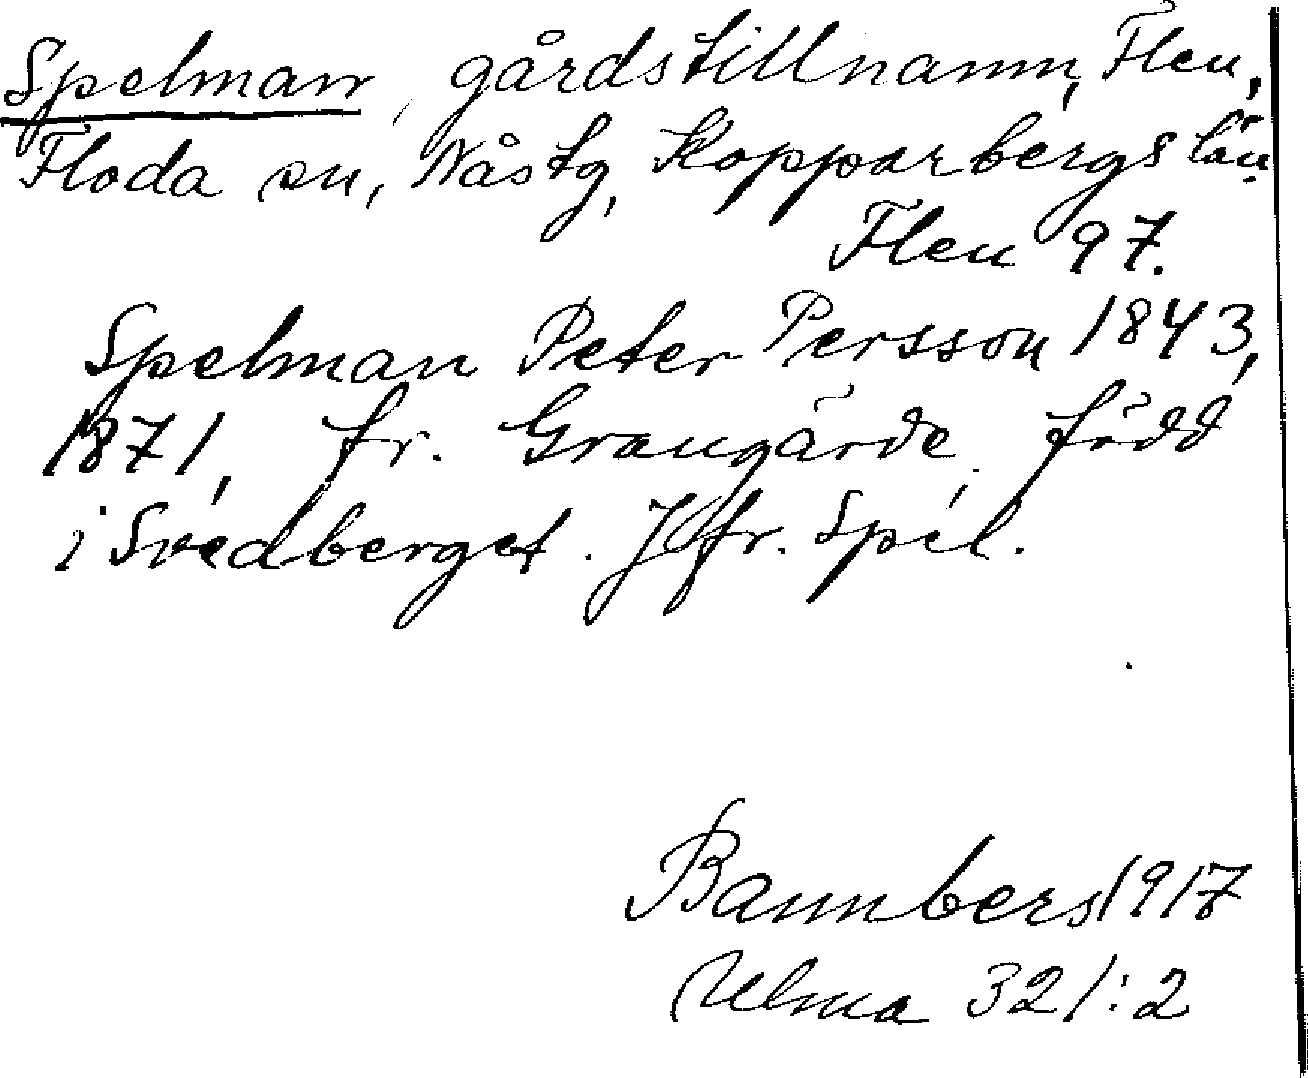 Spelman, gårdstillnamn, Flen,
Floda sn, Nåstg, Kopparbergs län
Flen 97.
Spelman Peter Persson 1843,
1871, fr. Grangärde, född
i Svedberget. Jfr. Spel.
Bannbers 1917
Ulma 321:2